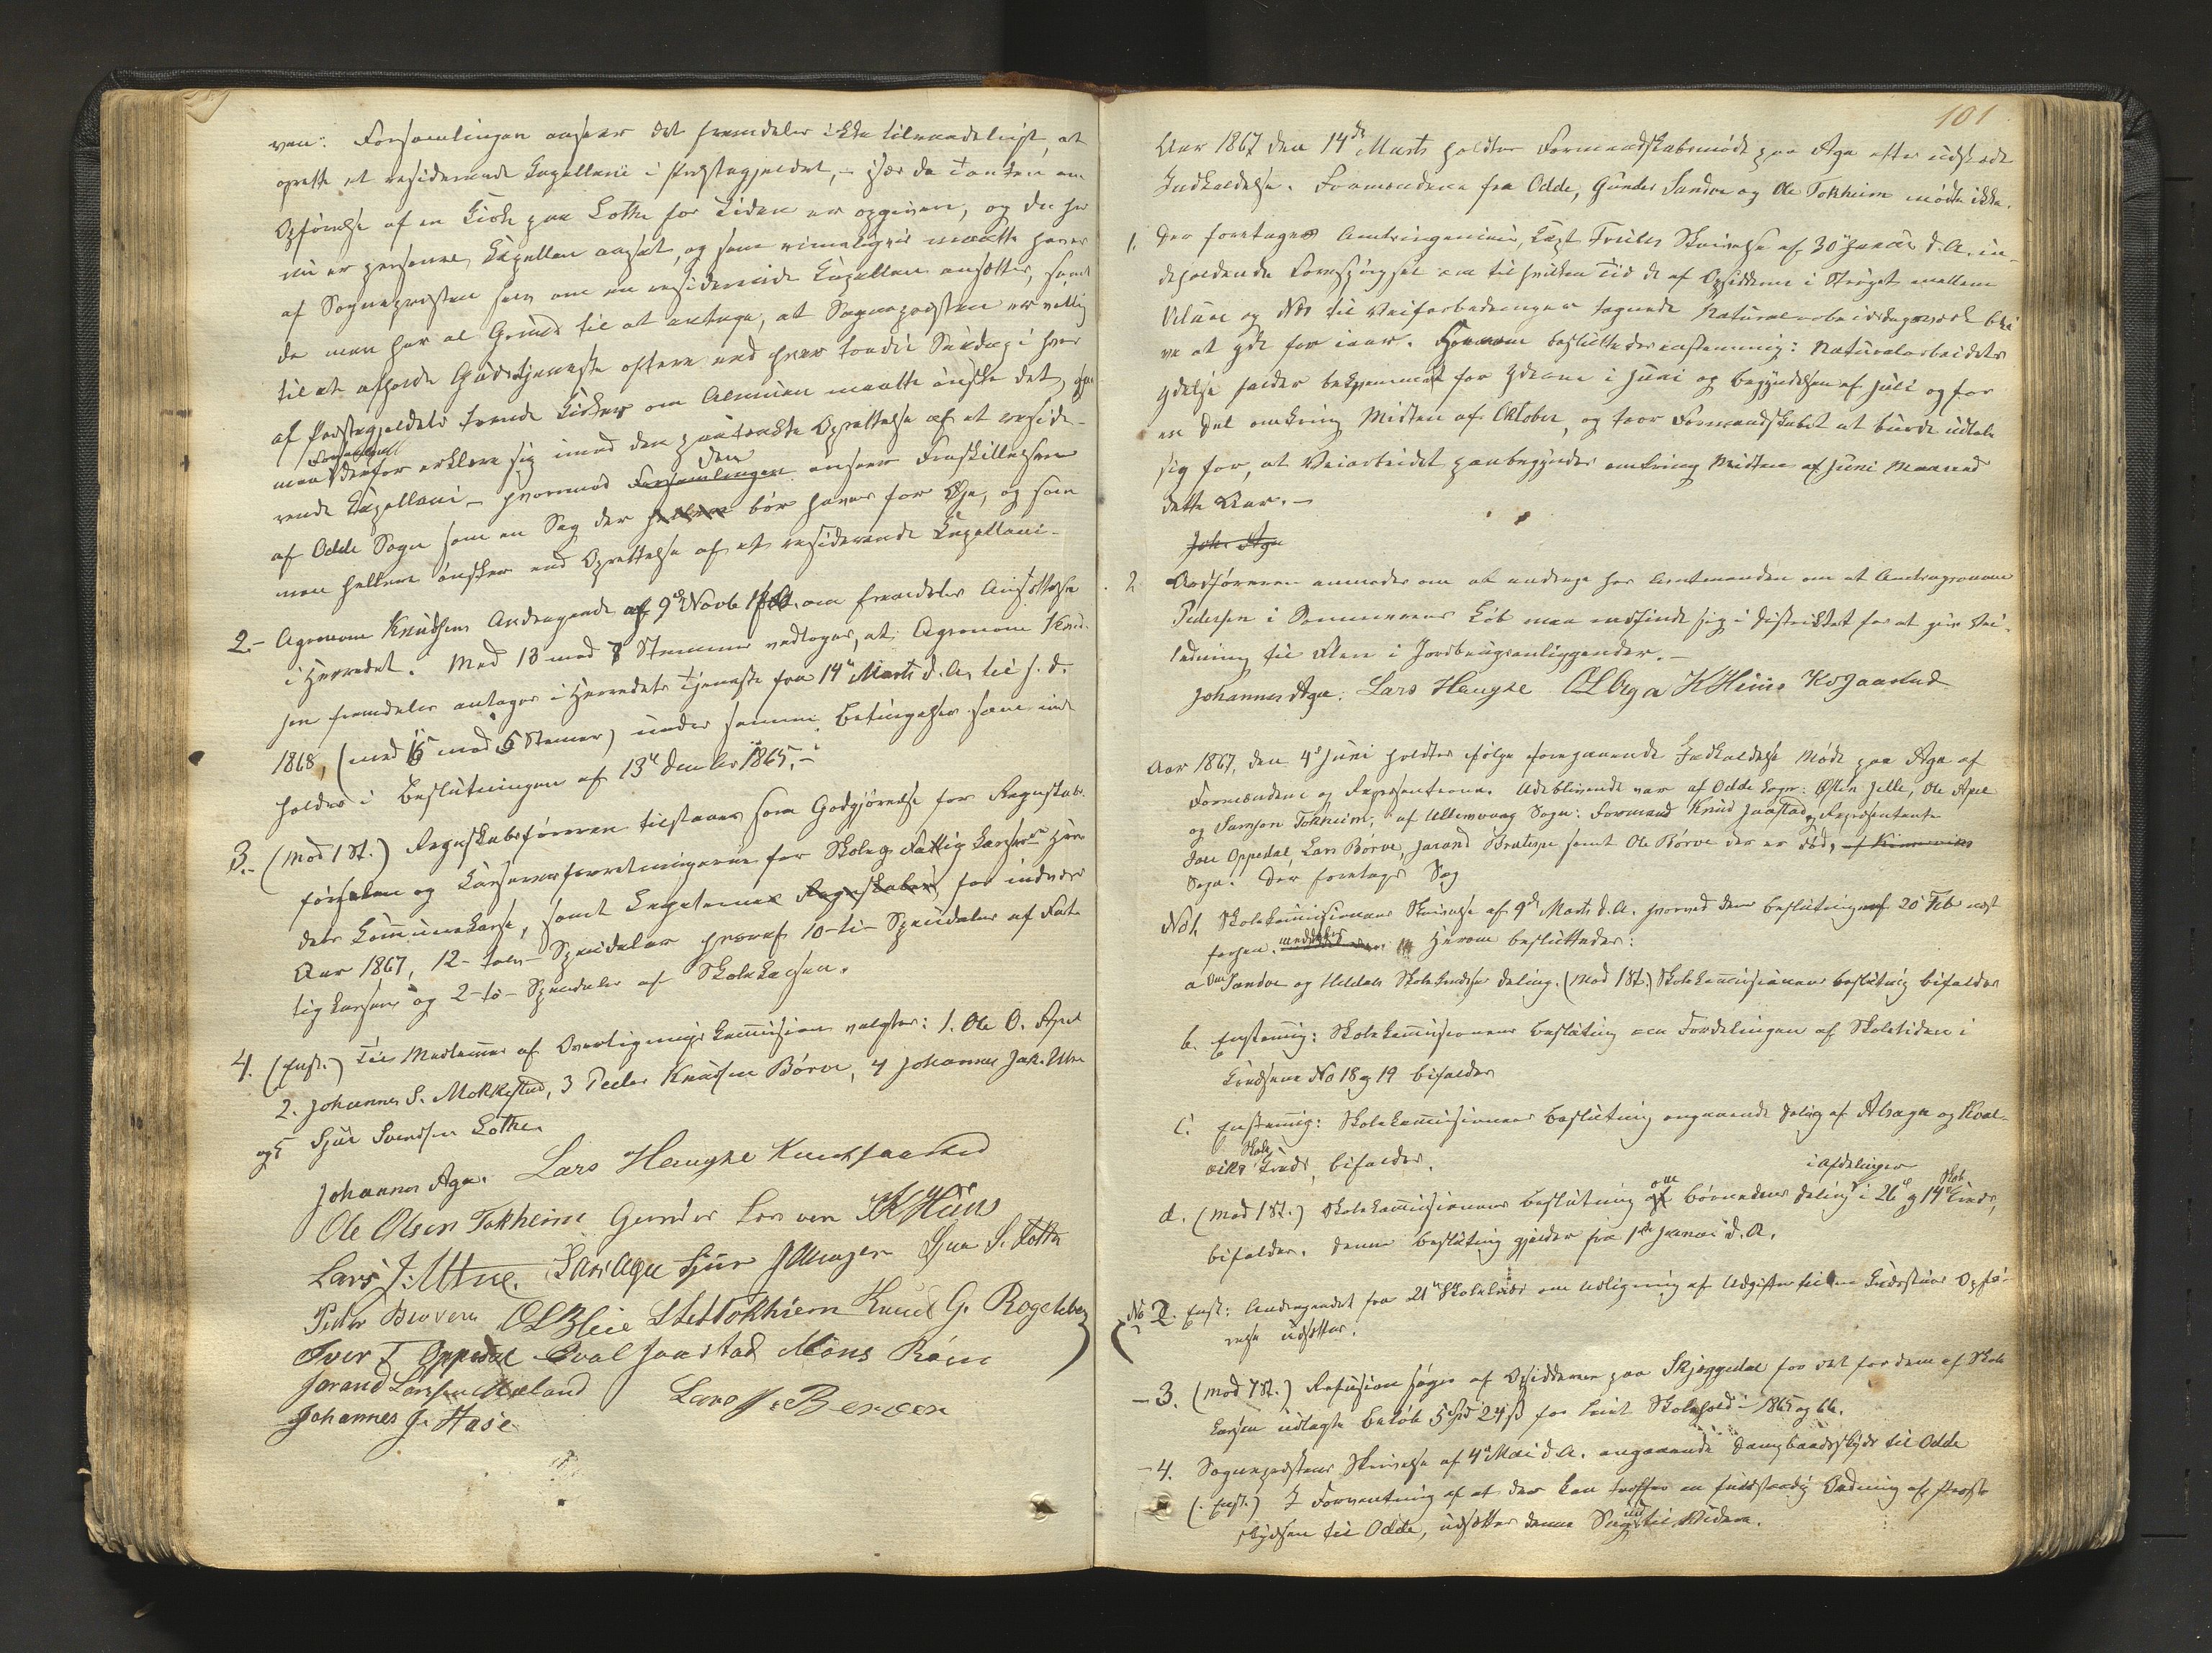 ven: Forsamlingen anseer det fremdeles ikke tilraadeligt, at
oprette et residerende Kapellani i Præstegjeldet, – især da Tanken om
Opførelse af en Kirke paa Lothe for Tiden er opgiven, og der her
nu er personel Kapellan ansat, og som rimeligvis maatte haves
af Sognepræsten selv om en residerende Kapellan ansættes, samt
da man har al Grund til at antage, at Sognepræsten er villig
til at afholde Gudstjeneste oftere end hver tredie Søndag i hver
af Præstegjeldets trende Kirker om Almuen maatte ønske det,
man Forsamlingen derfor erklære sig imod den paatænkte Oprettelse af et reside-
rende Kapellani – hvorimod Forsamlingen den anseer Fraskillelsen
af Odde Sogn som en Sag der hellere bør haves for Øje, og som
man hellere ønsker end Oprettelse af et residerende Kapellani –
2. – Agronom Knudsens Andragende af 9de Novb 1866 om fremdeles Ansættelse
i Herredet. Med 13 mod 8 Stemmer vedtoges, at Agronom Knud-
sen fremdeles antages i Herredets Tjeneste fra 14de Marts d. A. til s. d.
1868, (med 15 mod 6 Stemer) under samme Betingelser som inde-
holdes i Beslutningen af 13de Decbr 1865. –
3. – (Mod 1 St.) Regnskabsføreren tilstaaes som Godtgjørelse for Regnskabs-
førselen og Kasserforretningerne for Skole og Fattigkassen Her-
dets Kommunekasse, samt Legaterne Regnskaber, for indevær
Aar 1867, 12 – tolv – Speciedaler hvoraf 10 – ti – Speciedaler af Fat-
tigkassen og 2 – to – Speciedaler af Skolekassen.
4. (Enst.) Til Medlemer af Overligningskommissionen valgtes: 1. Ole O. Apel
2. Johannes S. Mokkestad, 3 Peder Knudsen Børve, 4 Johannes Joh. Utne
og 5 Sjur Svendsen Lothe.
Johannes Aga. Lars Haugse Knud Jaastad
Ole Olsen Tokheim Gunder K Huus
Lars J. Utne. Lars Aga Sjur Sjur S. Lothe
O L Bleie Tokheim Knud G.
Iver T Oppedal Joastad Mons
Jorand Larsen Mæland
Johannes J. Hase Lars J. Berven
101
Aar 1867 den 14de Marts holdtes Formandskabsmøde paa Aga efter udstedt
Indkaldelse. Formændene fra Odde, Gunder Sandve og Ole Tokheim mødte ikke.
1. Der foretoges Amtsingeniør, Capt. Skrivelse af 30te Januar d. A. in-
deholdende Forespørgsel om til hvilken Tid de af Opsidderne i Strøget mellem
og til Veiforbedringen tegnede Naturalarbeidsdagsværk bli-
ve at yde for iaar. Herom besluttedes enstemmig: Naturalarbeidets
ydelse falder bekvemmest for Yderne i Juni og Begyndelsen af Juli og for
en Del omkring Midten af Oktober, og tror Formandskabet at burde udtale
sig for, at Veiarbeidet paabegyndes omkring Midten af Juni Maaned
dette Aar. –
Joh. Aga
2 Ordføreren anmodes om at andrage hos Amtmanden om at Amtsagronom
Pedersen i Sommerens Løb maa indfinde sig i Distriktet for at give Vei-
ledning til Flere i Jordbrugsanliggender. –
Johannes Aga. Lars Haugse O L Aga K Huus K O Jaastad
Aar 1867, den 4de Juni holdtes ifølge foregaaende Indkaldelse Møde paa Aga af
Formændene og Repræsentanterne. Udeblivende var af Odde Sogn: Østen Jelle, Ole Apel
og Samson Tokheim; af Ullensvang Sogn: Formand Knud Jaastad og Repræsentanterne
Iver Oppedal, Lars Børve, Jorand samt Ole Børve der er død, af Kinservik
Sogn. Der foretoges Sag
No 1. Skolekommissionens Skrivelse af 9de Marts d. A. hvorved dens Beslutning af 20 Feb næst
forhen. meddeles Herom besluttedes:
a Om Sandve og Hildals Skolekredses Deling. (Mod 1 St.) Skolekommissionens Beslutning bifaldes
b. Enstemmig: Skolekommissionens Beslutning om Fordelingen af Skoletiden i
Kredsene No 18 og 19 bifaldes
c. Enstemmig: Skolekommissionens Beslutning angaaende Deling af Alsager og Kval-
viks Skole Kreds, bifaldes.
d. (Mod 1 St.) Skolekommissionens Beslutning af om Børnenes Deling i Afdelinger i 26de og 14de Skole Kreds,
bifaldes. Denne Beslutning gjelder fra 1ste Januar d. A.
No 2. Enst: Andragendet fra 21de Skolekreds om Udligning af Udgifter til en Kredsstues Opfø-
relse udsættes.
– 3. (Mod 7 St.) Refusion søges af Opsidderne paa Skjeggedal for det for dem af Skole
kassen udlagte Beløb 5 Spd 24 ß for Skolehold i 1865 og 66.
– 4. Sognepræstens Skrivelse af 4de Mai d. A. angaaende Dampbaadsskyds til Odde
(Enst.) I Forventning af at der kan træffes en fuldstændig Ordning af Præste
skydsen til Odde, udsættes denne Sag ind til Videre.